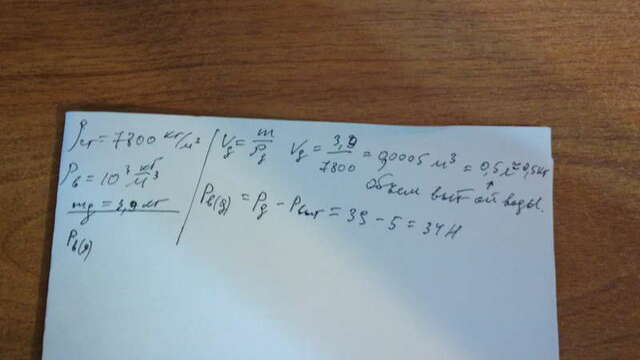 ρст = 7800 кг/м³
ρв = 10³ кг/м³
mд = 3,9 кг
Pв(д)
Vд = m/ρд Vд = 3,9/7800 = 0,0005 м³ = 0,5 л ≈ 0,5 кг
Объем выт ой воды.
Pв(д) = Pд - Pвыт = 39 - 5 = 34 Н